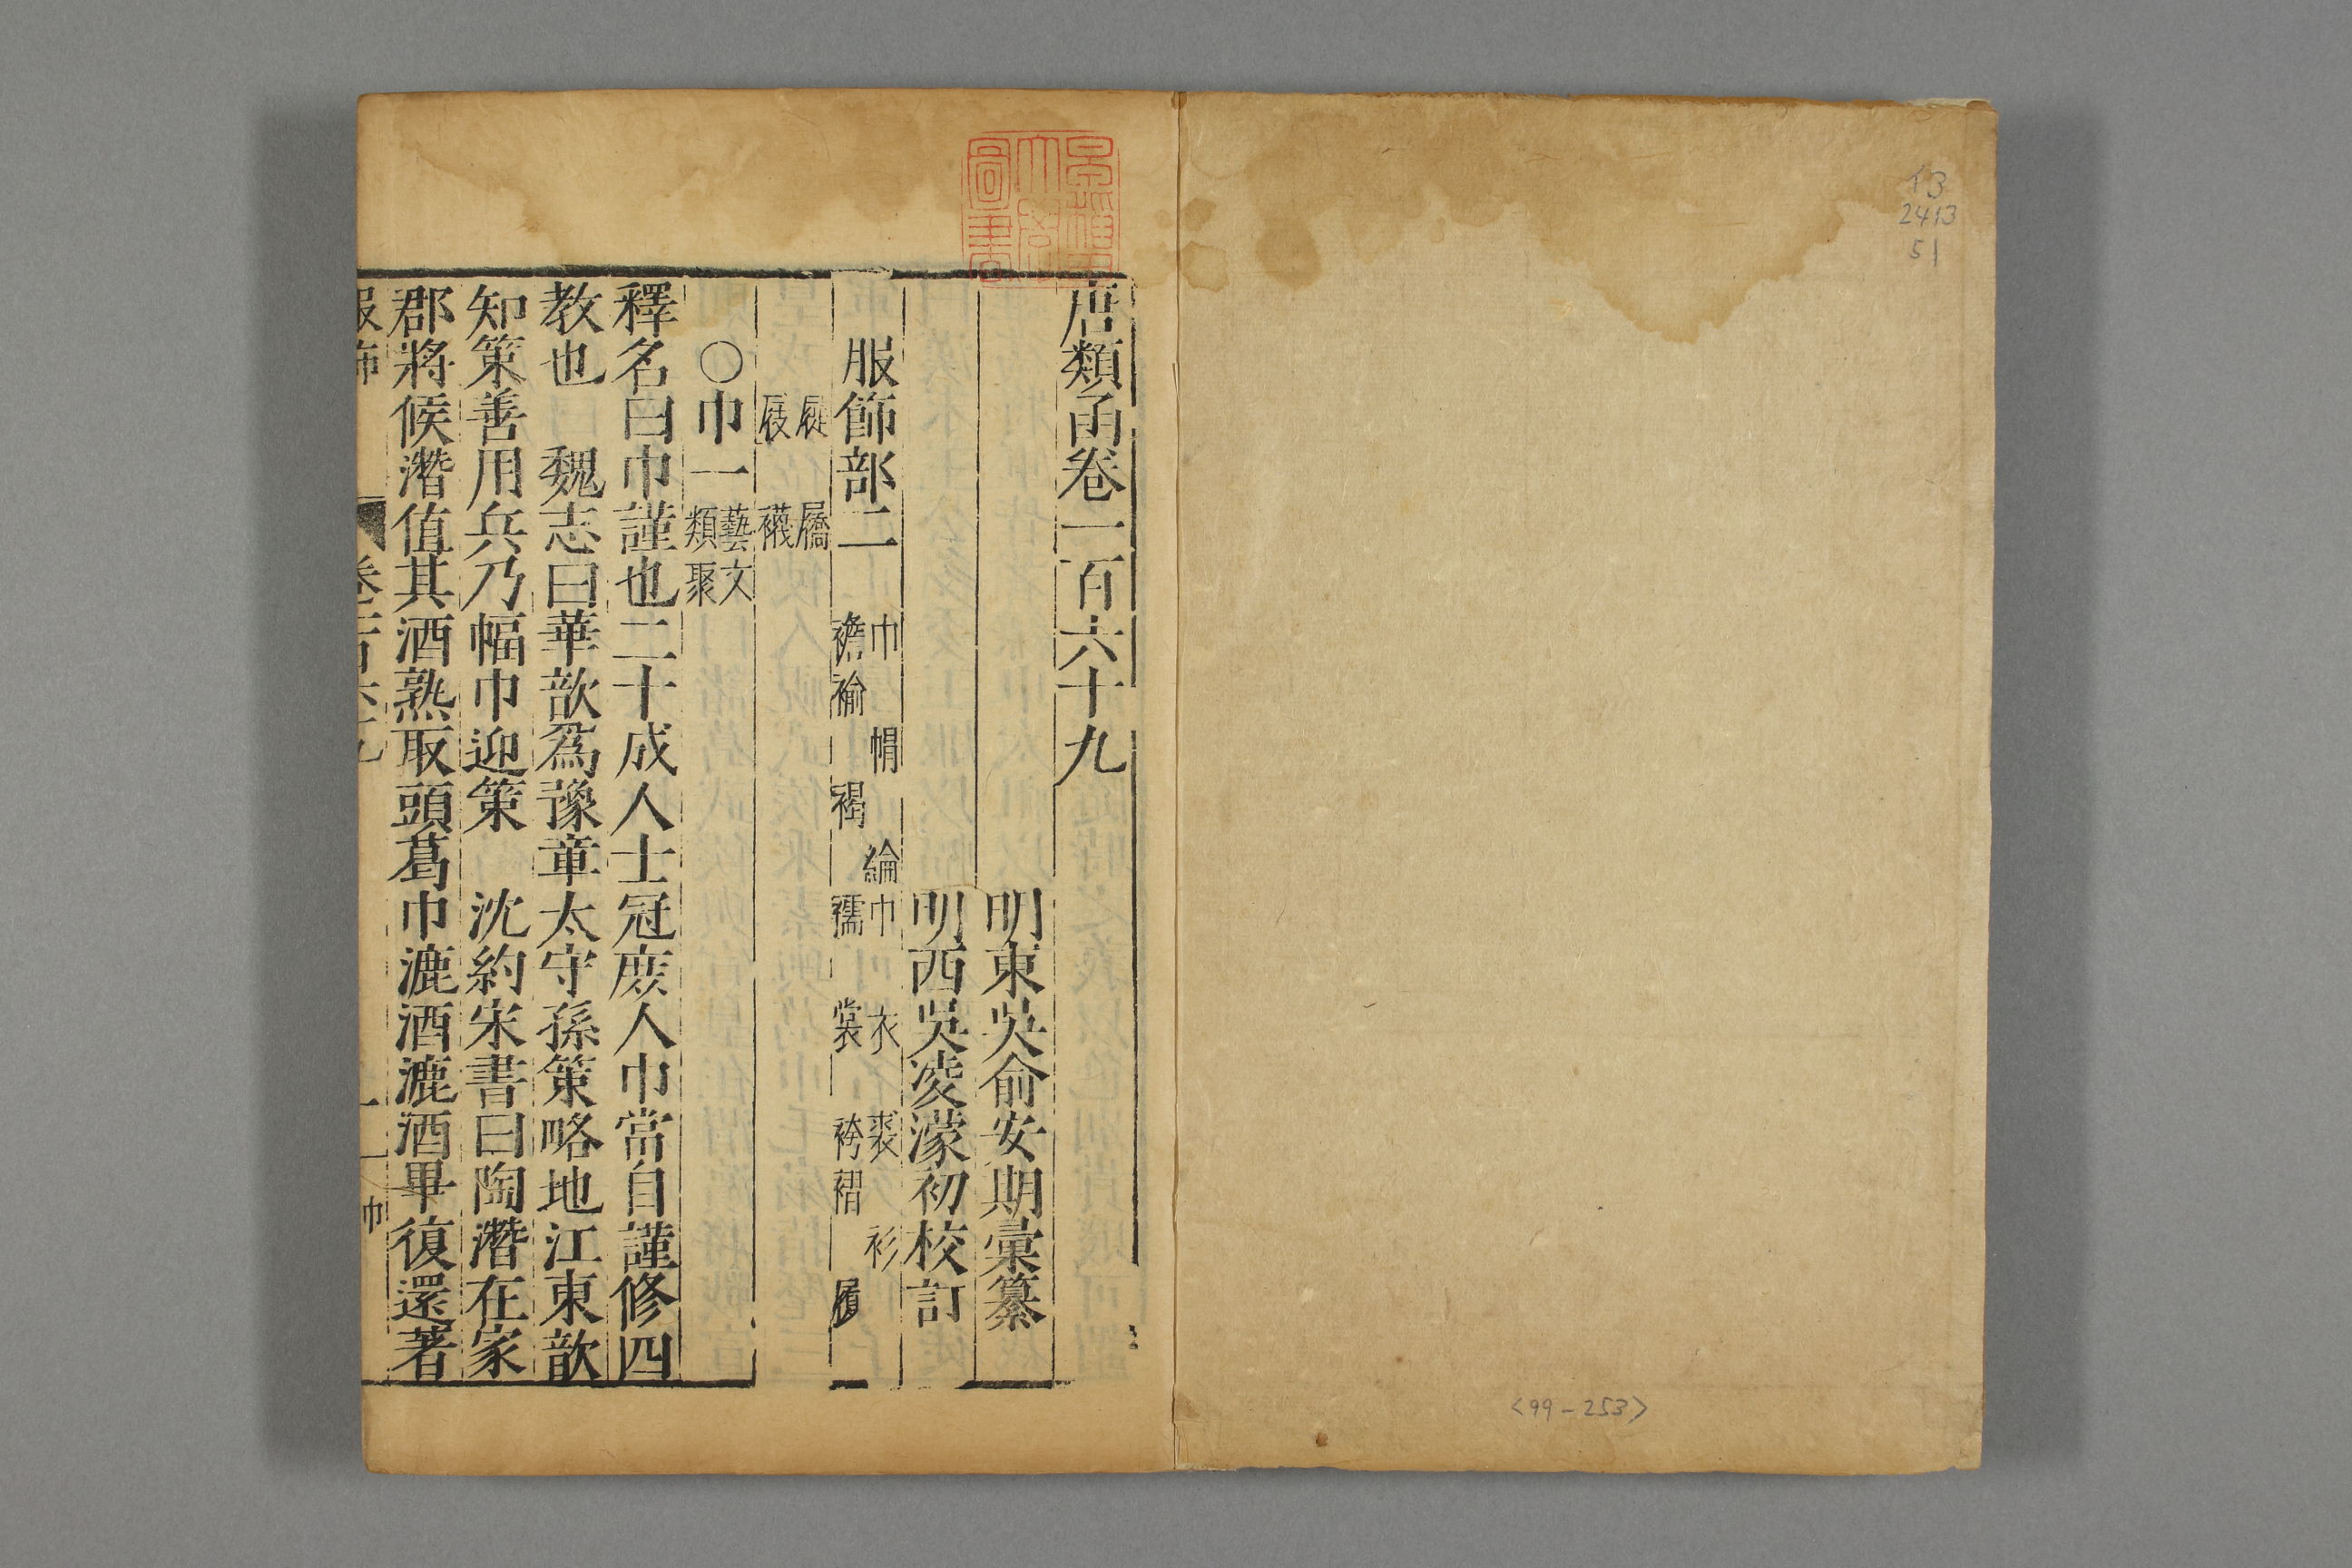 唐類函卷一百六十九
明東吳俞安期彙纂
明西吳凌濛初校訂
服飾部二 巾 帽 綸巾 衣 裘 衫
襜褕 褐 襦 裳 袴褶 履
屣 屩
屐 襪
○巾一 藝文
類聚
釋名曰巾謹也二十成人士冠庻人巾當自謹修四
教也 魏志曰華歆爲豫章太守孫策略地江東歆
知策善用兵乃幅巾迎策 沈約宋書曰陶潛在家
郡將候潛值其酒熟取頭葛巾漉酒漉酒畢復還著
服飾 卷一百六十九 一 巾
13
2413
51
<99-253>